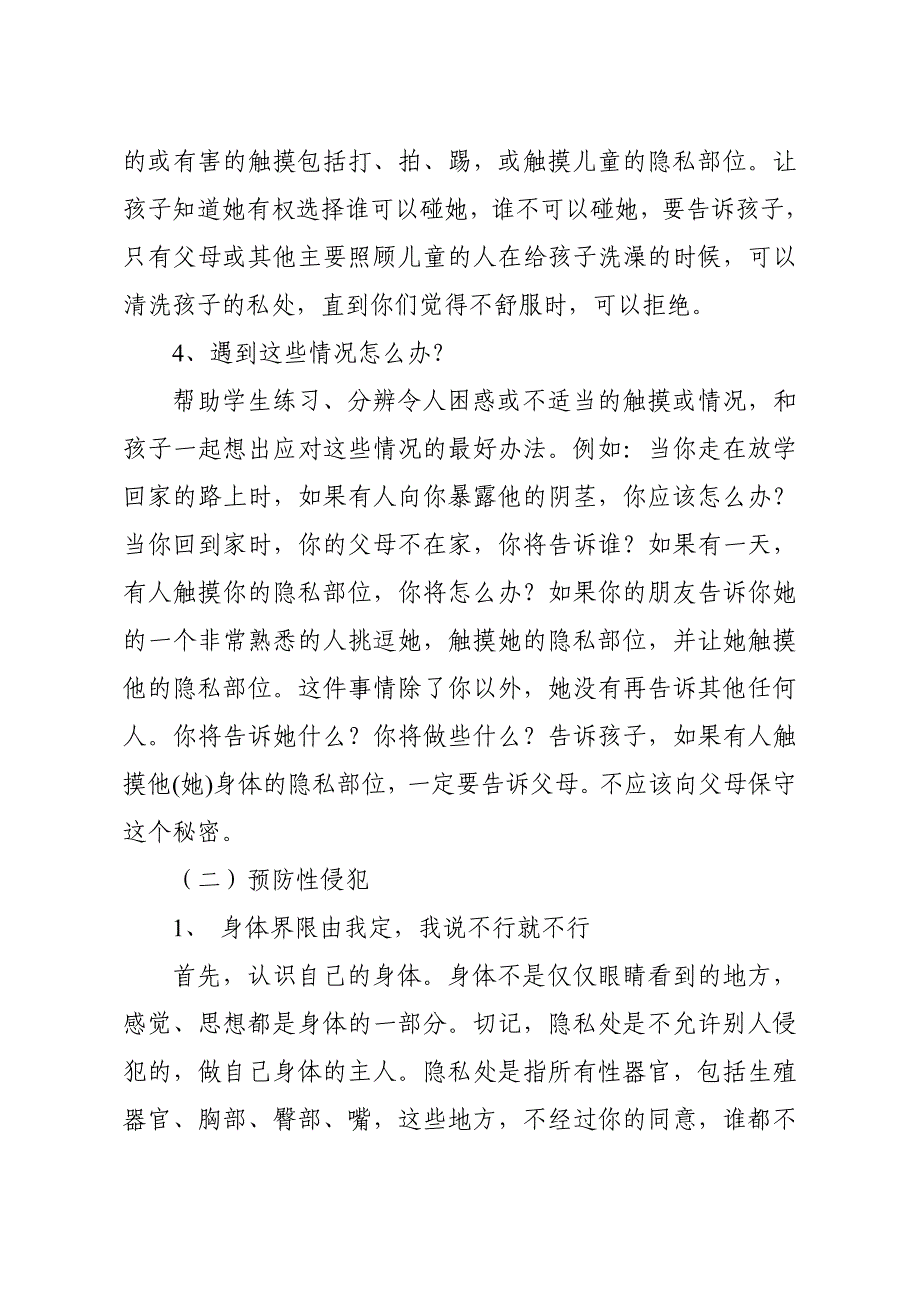 的或有害的触摸包括打、拍、踢，或触摸儿童的隐私部位。让
孩子知道她有权选择谁可以碰她，谁不可以碰她，要告诉孩子，
只有父母或其他主要照顾儿童的人在给孩子洗澡的时候，可以
清洗孩子的私处，直到你们觉得不舒服时，可以拒绝。
4、遇到这些情况怎么办？
帮助学生练习、分辨令人困惑或不适当的触摸或情况，和
孩子一起想出应对这些情况的最好办法。例如：当你走在放学
回家的路上时，如果有人向你暴露他的阴茎，你应该怎么办？
当你回到家时，你的父母不在家，你将告诉谁？如果有一天，
有人触摸你的隐私部位，你将怎么办？如果你的朋友告诉你她
的一个非常熟悉的人挑逗她，触摸她的隐私部位，并让她触摸
他的隐私部位。这件事情除了你以外，她没有再告诉其他任何
人。你将告诉她什么？你将做些什么？告诉孩子，如果有人触
摸他(她)身体的隐私部位，一定要告诉父母。不应该向父母保守
这个秘密。
（二）预防性侵犯
1、 身体界限由我定，我说不行就不行
首先，认识自己的身体。身体不是仅仅眼睛看到的地方，
感觉、思想都是身体的一部分。切记，隐私处是不允许别人侵
犯的，做自己身体的主人。隐私处是指所有性器官，包括生殖
器官、胸部、臀部、嘴，这些地方，不经过你的同意，谁都不